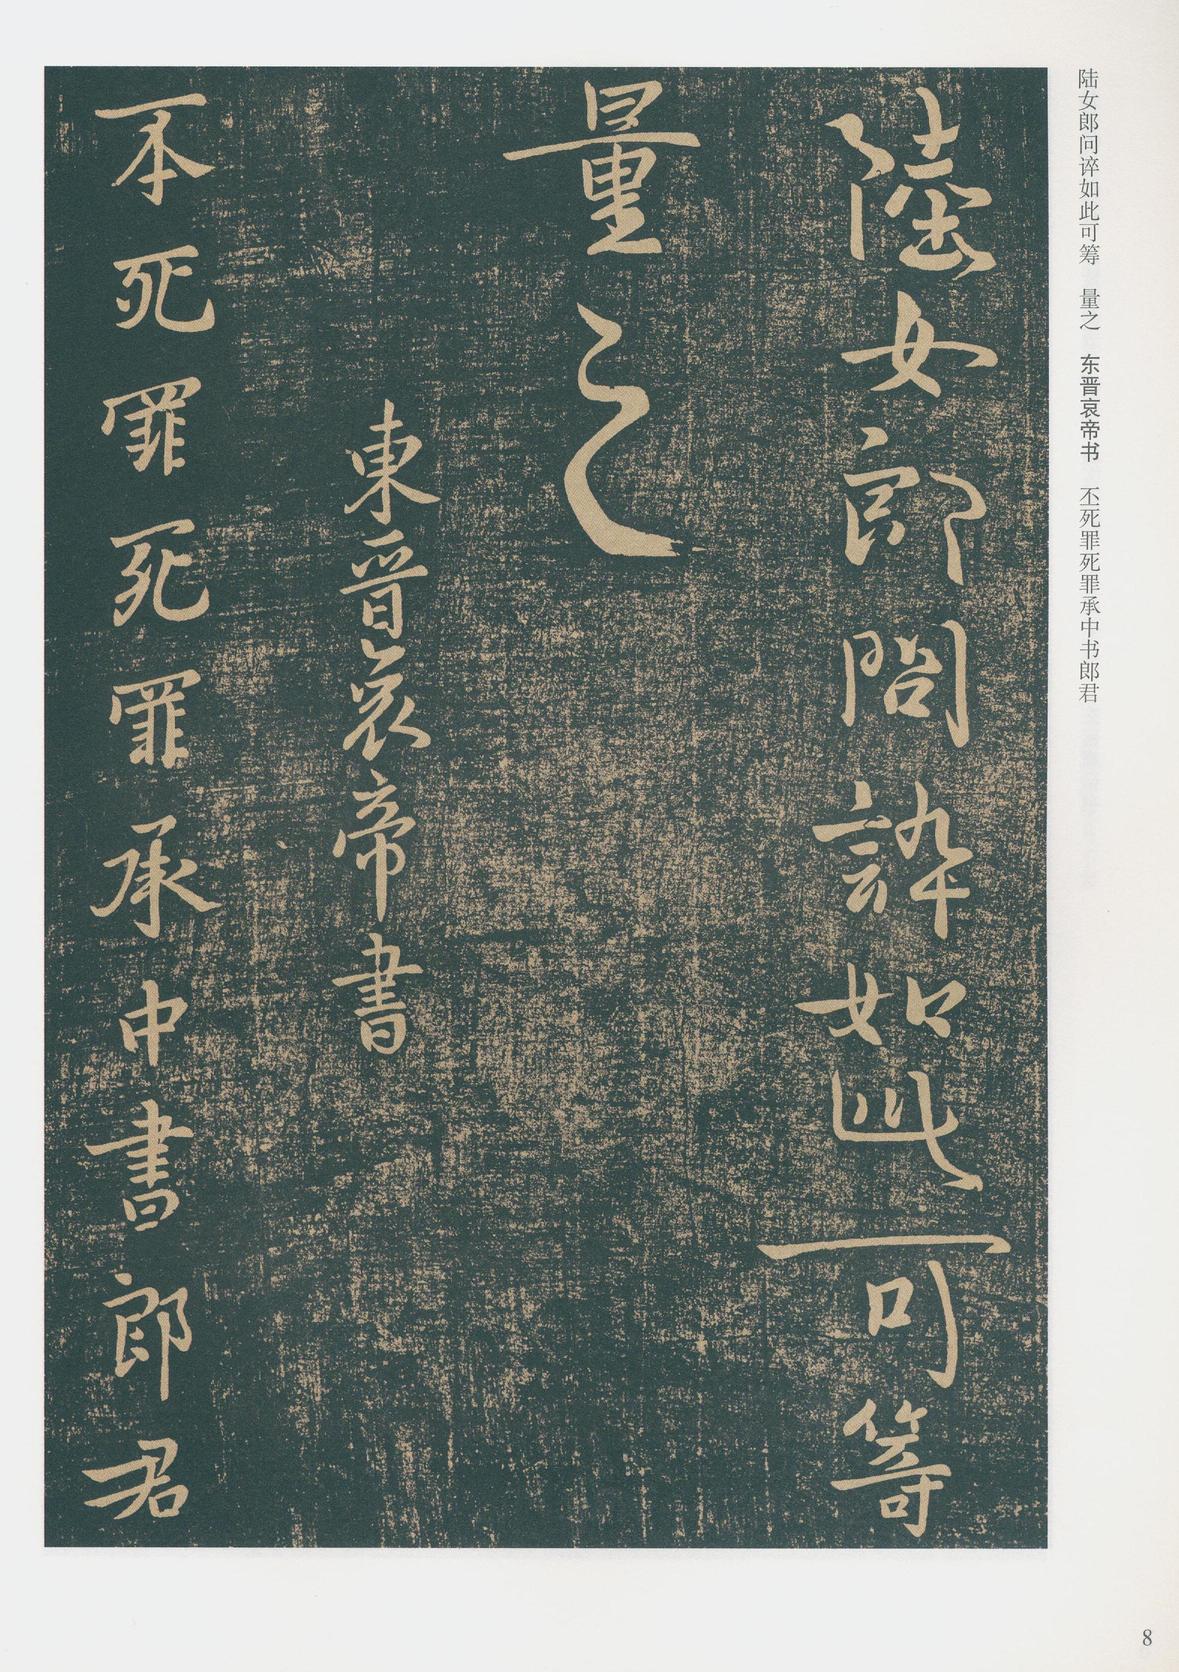 陆女郎问谇如此可筹　量之　东晋哀帝书　丕死罪死罪承中书郎君
陸女郎問誶如此可籌
量之
東晉哀帝書
不死罪死罪承中書郎君
8